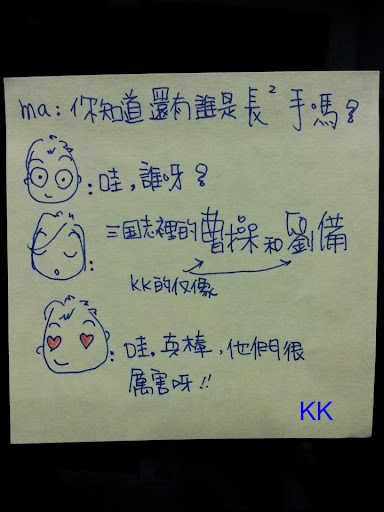 ma：你知道還有誰是長²手嗎？
：哇，誰呀？
：三国志裡的曹操和劉備
KK的偶像
：哇，真棒，他們很
厲害呀!!
KK